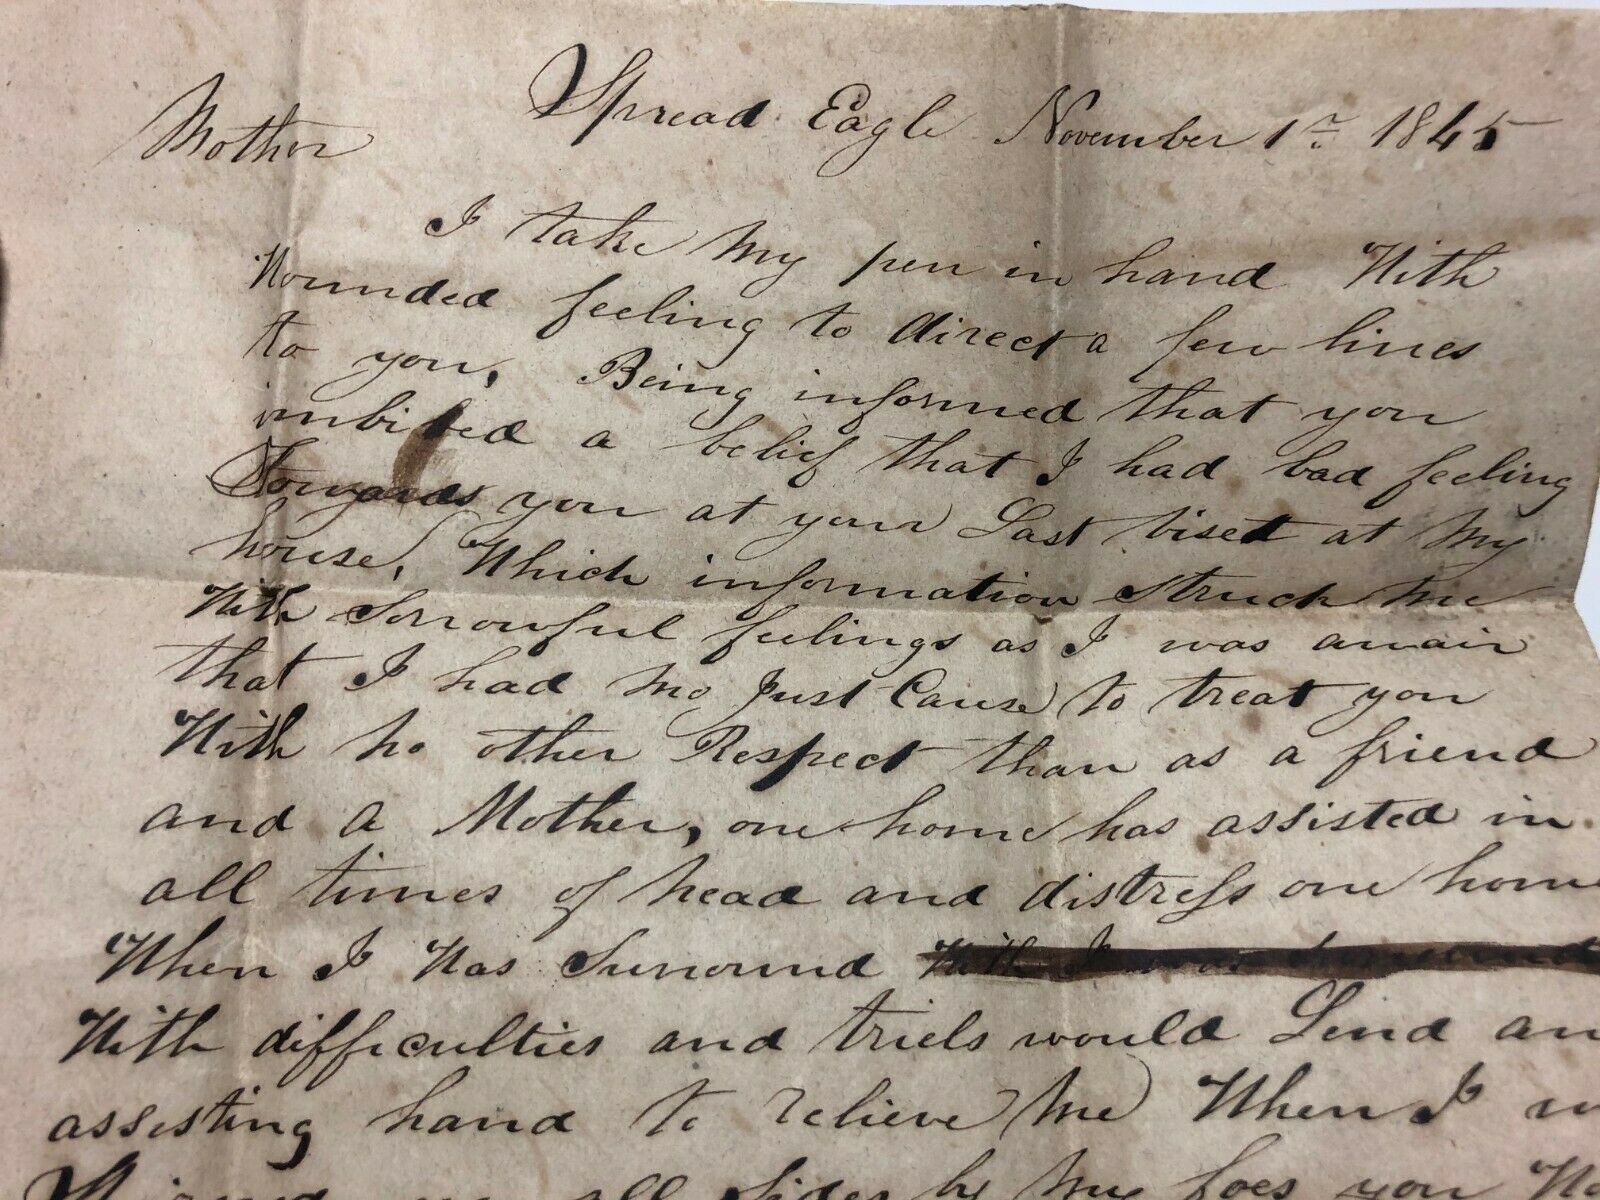 Spread Eagle November 1st 1845
Mother
I take my pen in hand With
Wounded feeling to direct a few lines
to you, Being informed that you
imbibed a belief that I had bad feeling
Towards you at your Last viset at my
house, Which information Struck me
With Sorrowful feelings as I was awair
that I had no Just Cause to treat you
With no other Respect than as a friend
and a Mother, one home has assisted in
all times of head and distress one home
When I Was Suround With I was Surround
With difficulties and triels would Lend an
assisting hand to relieve me When I w
on all Sides by my foes you